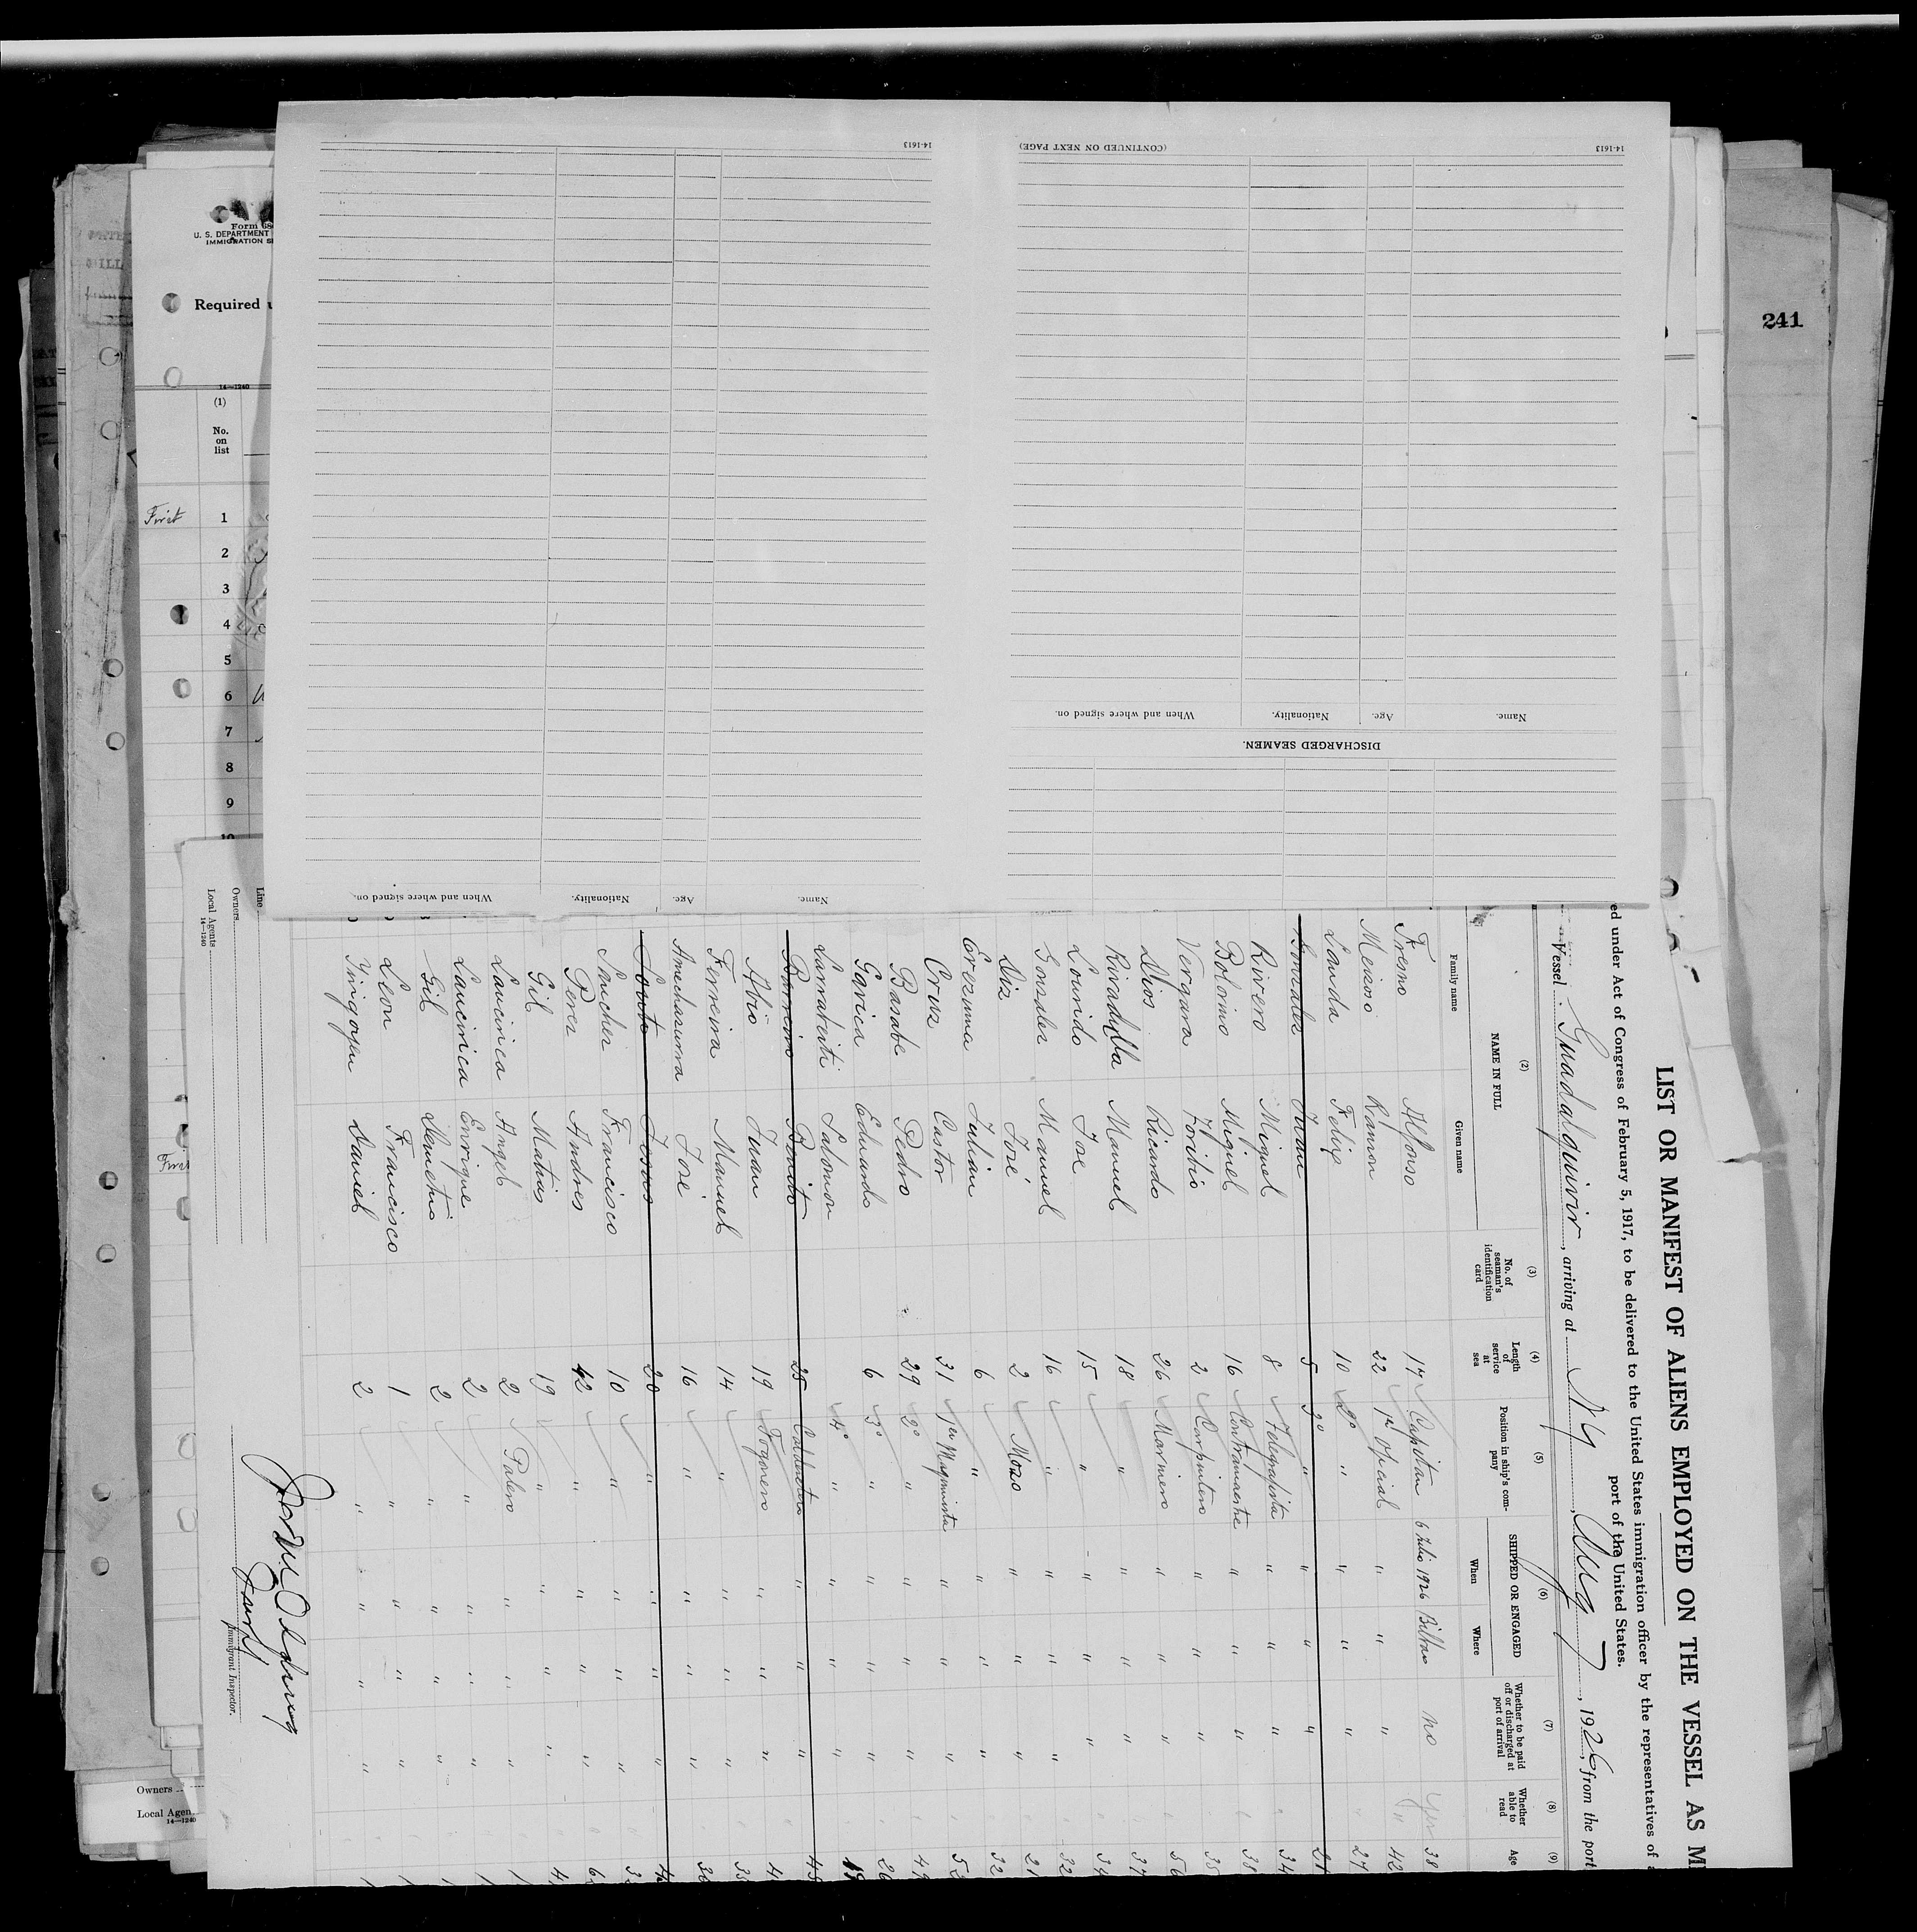 241
Form
U. S. DEPARTMENT
IMMIGRATION
Required
14—1240
(1)
No.
on
list
First
1
2
3
4
5
6
7
8
9
10
14-1613
(CONTINUED ON NEXT PAGE)
14-1613
Name.
Age.
Nationality.
When and where signed on.
DISCHARGED SEAMEN.
Name.
Age.
Nationality.
When and where signed on.
LIST OR MANIFEST OF ALIENS EMPLOYED ON THE VESSEL AS M
ed under Act of Congress of February 5, 1917, to be delivered to the United States immigration officer by the representatives of a
port of the United States.
Vessel Guadalquivir, arriving at N Y, Aug 7, 1926, from the port
(2) (3) (4) (5) (6) (7) (8) (9)
NAME IN FULL
Family name Given name
No. of seaman's identification card
Length of service at sea
Position in ship's company
SHIPPED OR ENGAGED
When Where
Whether to be paid off or discharged at port of arrival
Whether able to read
Age
Fresno Alfonso 17 Capitan 6 Julio 1926 Bilbao no yes 38
Meizoso Ramon 22 1er Oficial " " " " 42
Landa Felip 10 2º " " " " 27
Gonzales Juan 5 3º " " " " 21
Rivero Miguel 8 Telegrafista " " " 34
Bolorino Miguel 16 Contramaestre " " " 38
Vergara Toribio 2 Carpintero " " " 35
Dios Ricardo 26 Marinero " " " 56
Rivadulla Manuel 18 " " " " 37
Lourido Jose 15 " " " " 34
Gonzalez Manuel 16 " " " " 32
Diz José 2 Mozo " " " 21
Erezuma Julian 6 " " " " 32
Cruz Castor 31 1er Maquinista " " " 52
Basabe Pedro 29 2º " " " " 49
Garica Eduardo 6 3º " " " " 26
Larrabeiti Salomon 4º " " " " 19
Barreiro Benito 25 Calderetero " " " 48
Abio Juan 19 Fogonero " " " 4
Ferreira Manuel 14 " " " " 35
Amechazurra José 16 " " " " 36
Souto Jesus 20 " " " " 4
Sanchez Francisco 10 " " " " 3
Perez Andres 42 " " " " 6
Gil Matias 19 " " " " 4
Laucirica Angel 2 Palero " " "
Laucirica Enrique 2 " " " "
Gil Demetrio 2 " " " "
Leon Francisco 1 " " " "
Yrigoyen Daniel 2 " " " "
Immigrant Inspector.
Line
Owners
Local Agents
14—1240
First
Owners
Local Agen
14—1240